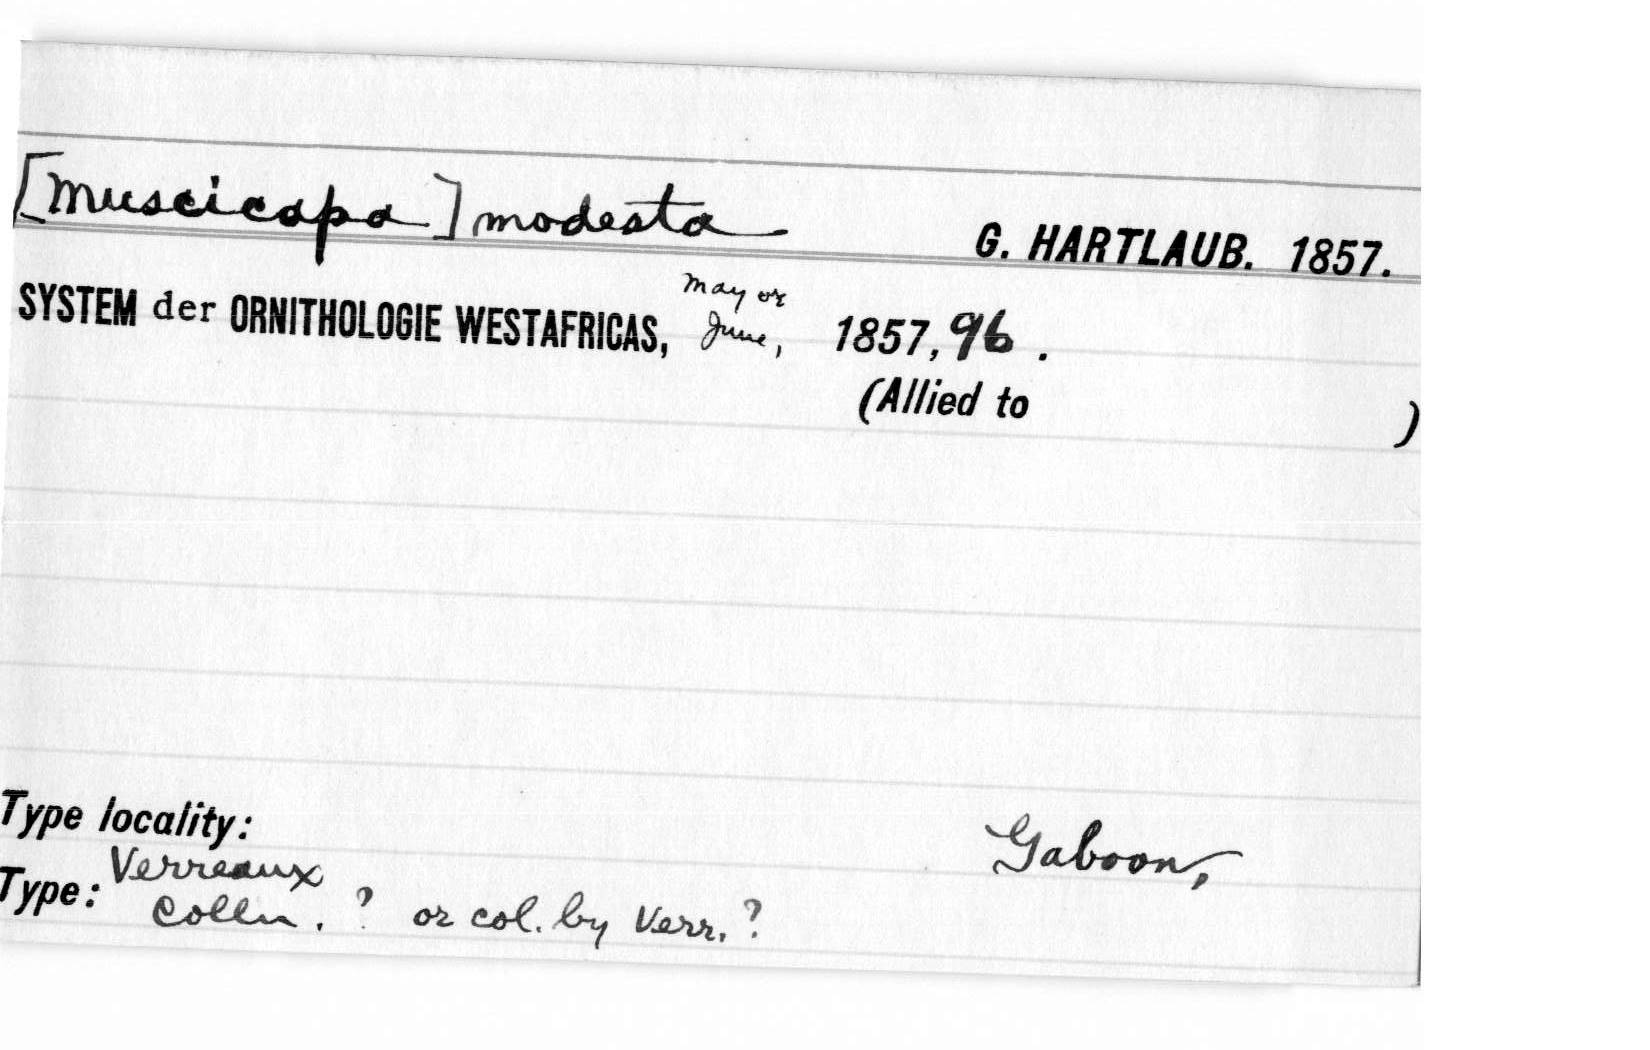 [Muscicapa] modesta G. HARTLAUB. 1857.
SYSTEM der ORNITHOLOGIE WESTAFRICAS, May or June, 1857, 96.
(Allied to )
Type locality: Gaboon,
Type: Verreaux Colln. ? or col. by Verr. ?